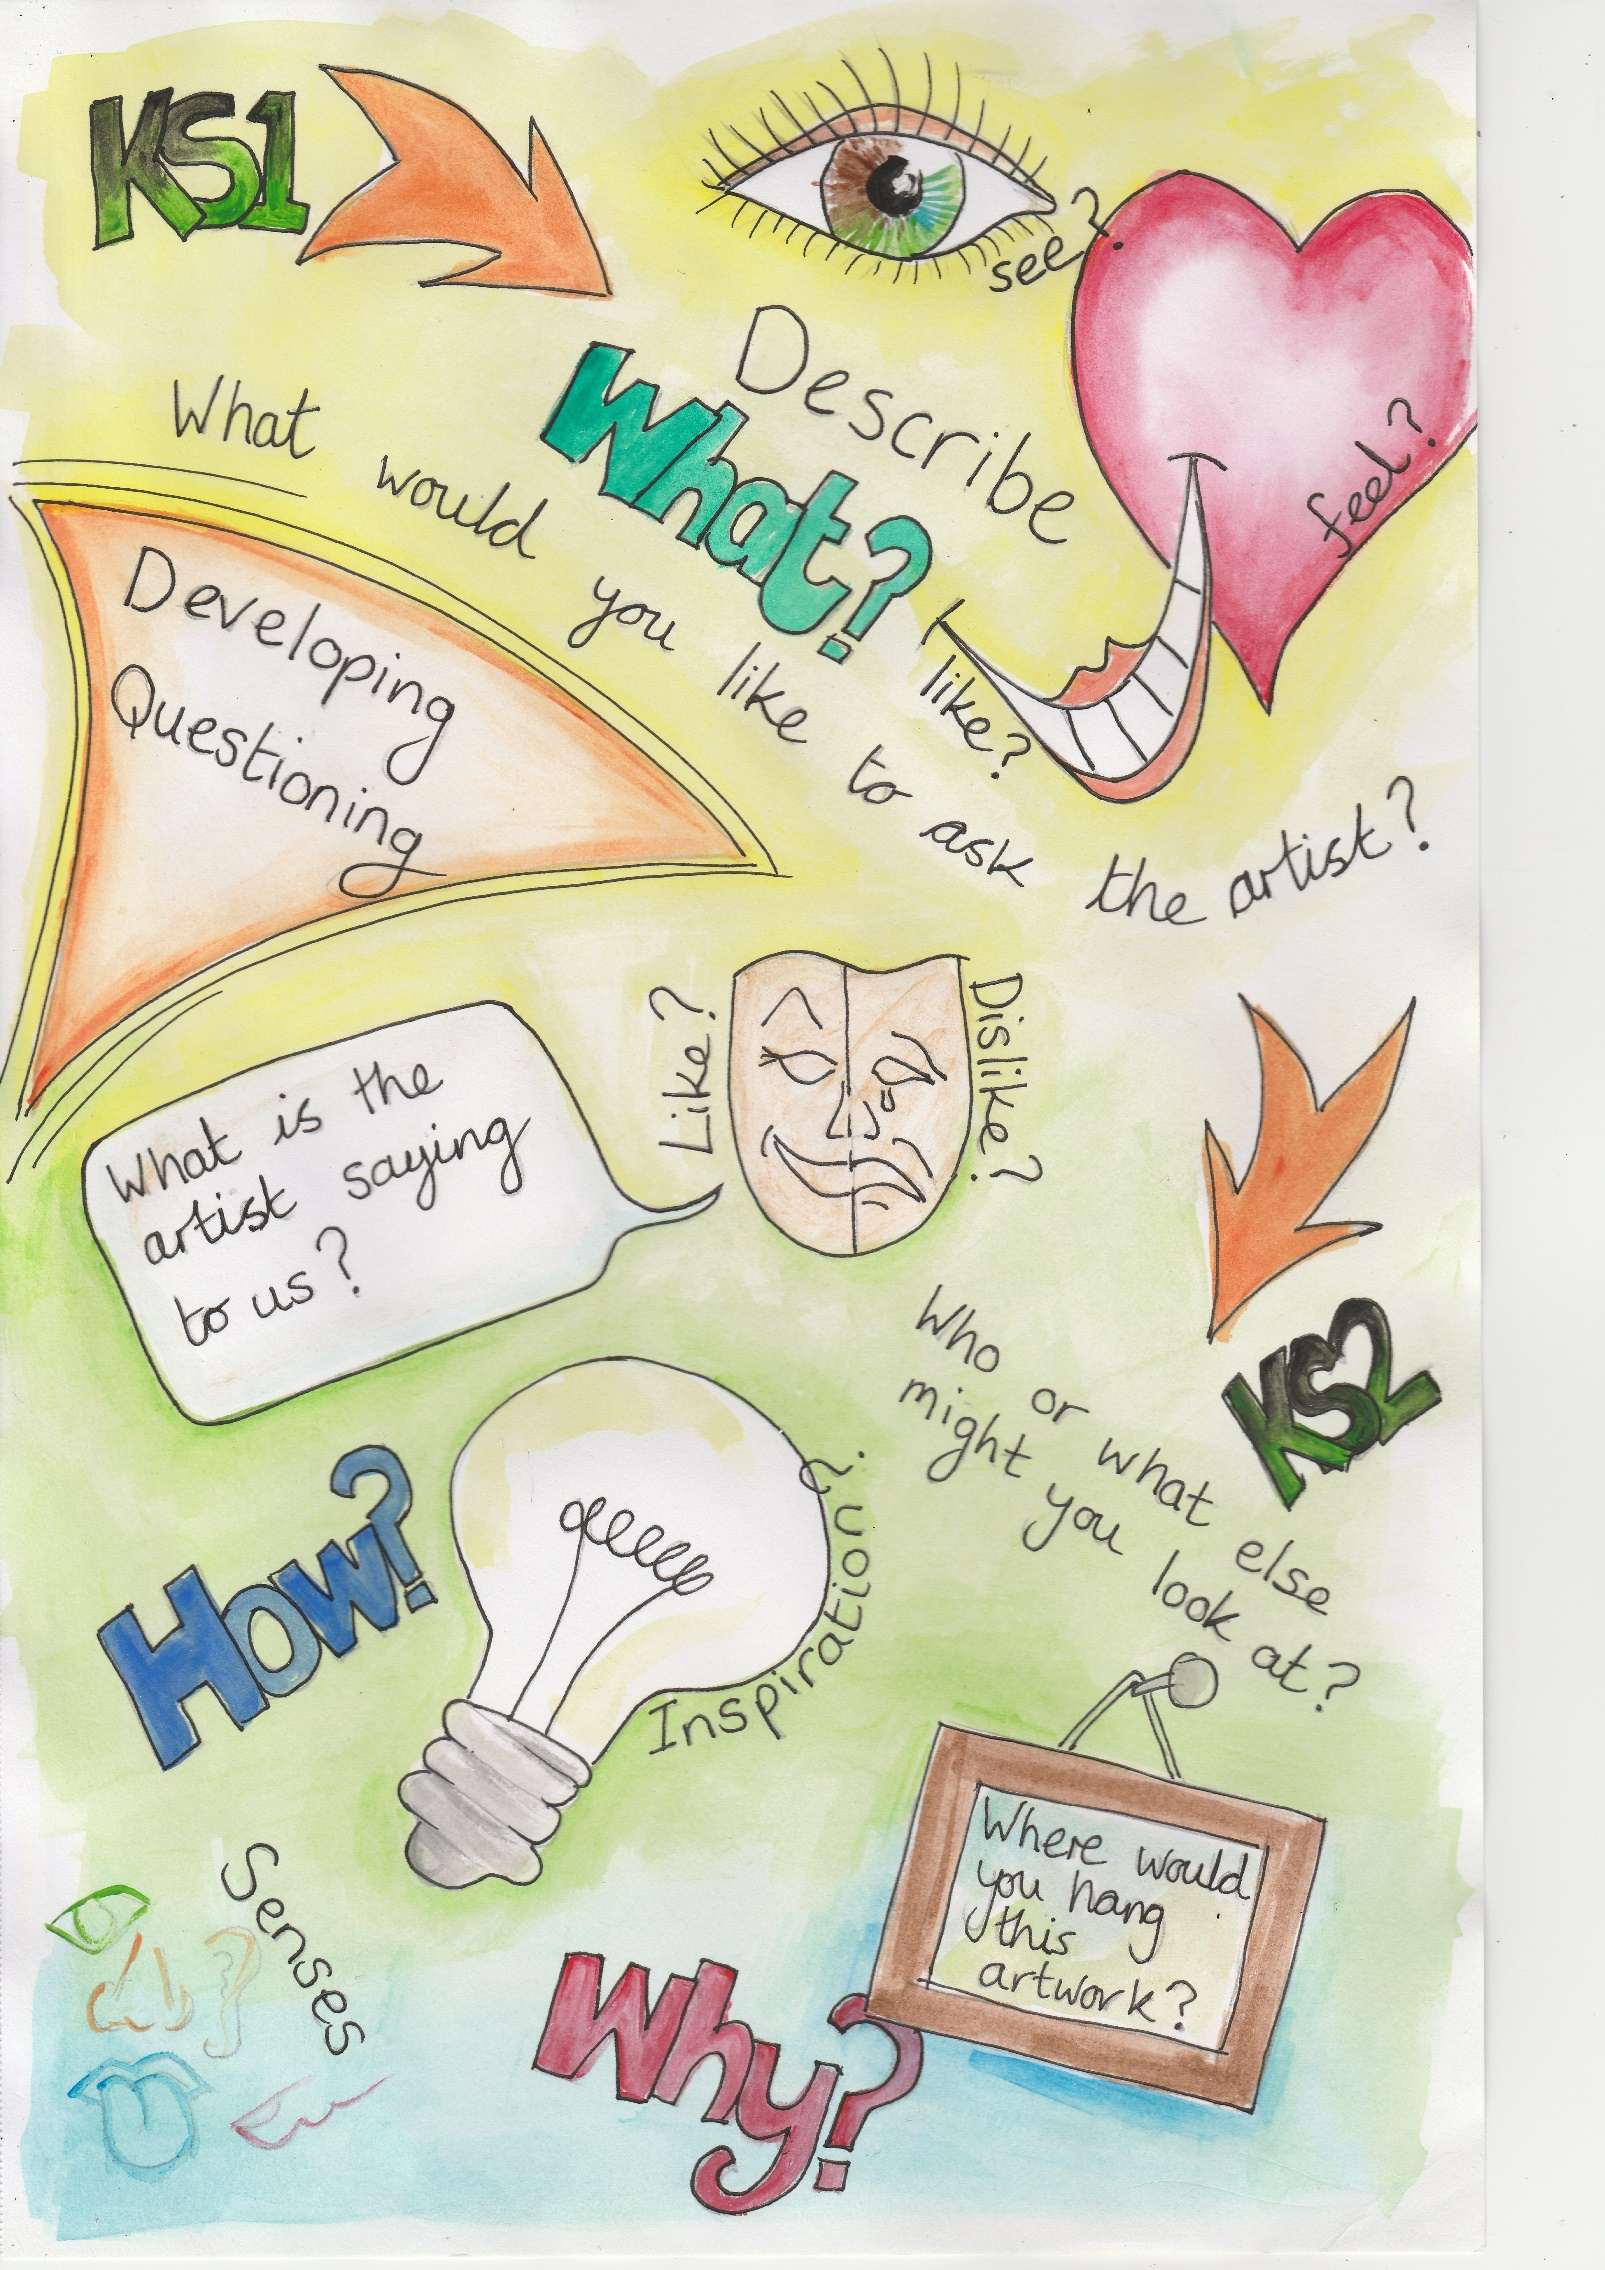 KS1
see?
feel?
Describe
What?
like?
What would you like to ask the artist?
Developing
Questioning
Like?
Dislike?
What is the
artist saying
to us?
KS2
Who or what else
might you look at?
How?
Inspiration?
Where would
you hang
this
artwork?
Senses
Why?